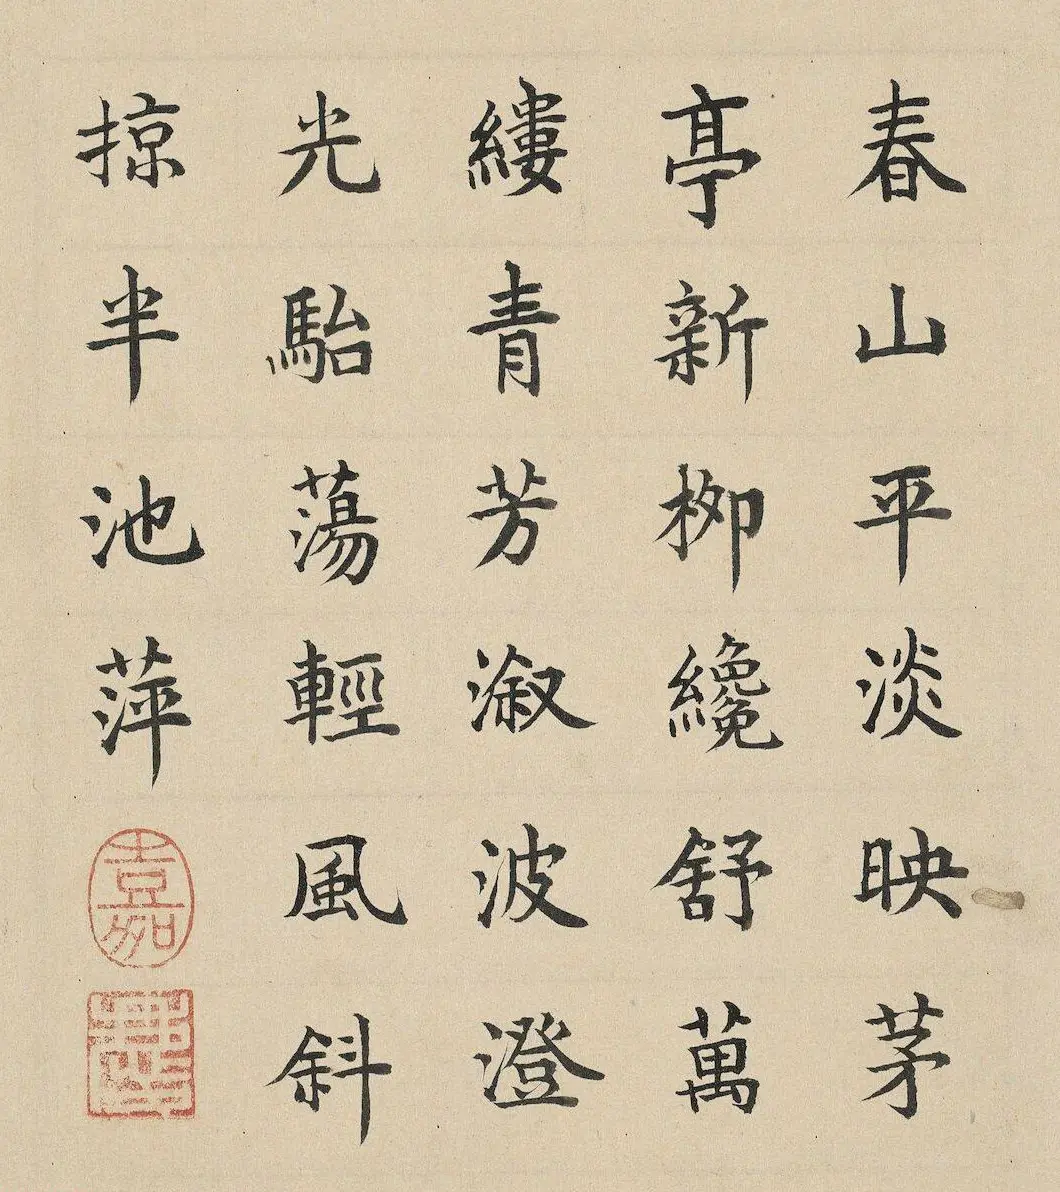 春山平淡映茅
亭新栁纔舒萬
縷青芳溆波澄
光駘蕩輕風斜
掠半池萍
嘉